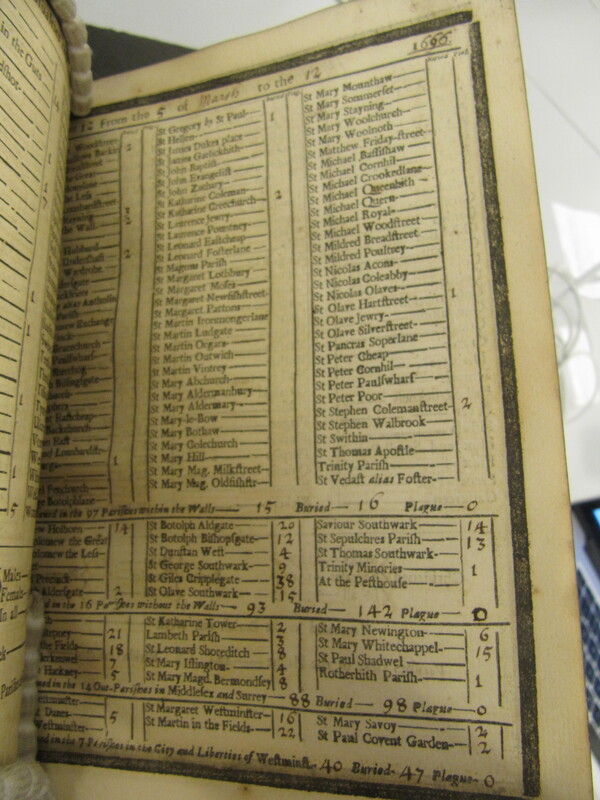 in the Guns
1666.
12 From the 5 of March to the 12
St Gregory by St Paul 1
St Hellen
St James Dukes place
St James Garlickhith
St John Baptist
St John Evangelist
St John Zachary
St Katharine Coleman 2
St Katharine Creechurch
St Lawrence Jewry
St Lawrence Pountney
St Leonard Eastcheap
St Leonard Fosterlane
St Magnus Parish
St Margaret Lothbury
St Margaret Moses
St Margaret Newfishstreet
St Margaret Pattons
St Martin Ironmongerlane
St Martin Ludgate
St Martin Orgars
St Martin Outwich
St Martin Vintrey
St Mary Abchurch
St Mary Aldermanbury
St Mary Aldermary
St Mary-le-Bow
St Mary Bothaw
St Mary Colechurch
St Mary Hill
St Mary Mag. Milkstreet
St Mary Mag. Oldfishstr
St Mary Mounthaw
St Mary Sommerset
St Mary Stayning
St Mary Woolchurch
St Mary Woolnoth
St Matthew Friday-street
St Michael Bassishaw
St Michael Cornhil
St Michael Crookedlane
St Michael Queenhith
St Michael Quern
St Michael Royal
St Michael Woodstreet
St Mildred Breadstreet
St Mildred Poultney
St Nicolas Acons
St Nicolas Coleabby
St Nicolas Olaves
St Olave Hartstreet 1
St Olave Jewry
St Olave Silverstreet
St Pancras Soperlane
St Peter Cheap
St Peter Cornhil
St Peter Paulswharf
St Peter Poor
St Stephen Colemanstreet 2
St Stephen Walbrook
St Swithin
St Thomas Apostle
Trinity Parish
St Vedast alias Foster
in the 97 Parishes within the Walls 15 Buried 16 Plague 0
Holborn 14
the Great
the Less
Aldersgate 2
St Botolph Aldgate 20
St Botolph Bishopsgate 12
St Dunstan West 4
St George Southwark 9
St Giles Cripplegate 38
St Olave Southwark 15
Saviour Southwark 14
St Sepulchres Parish 13
St Thomas Southwark
Trinity Minories 1
At the Pesthouse
in the 16 Parishes without the Walls 93 Buried 142 Plague 0
21
the Fields 18
7
Hackney 5
St Katharine Tower 2
Lambeth Parish 3
St Leonard Shoreditch 8
St Mary Islington 4
St Mary Magd. Bermondsey 8
St Mary Newington 6
St Mary Whitechappel 15
St Paul Shadwel
Rotherhith Parish 1
in the 14 Out-Parishes in Middlesex and Surrey 88 Buried 98 Plague 0
5
St Margaret Westminster 16
St Martin in the Fields 22
St Mary Savoy 2
St Paul Covent Garden 2
in the 7 Parishes in the City and Liberties of Westminst. 40 Buried 47 Plague 0